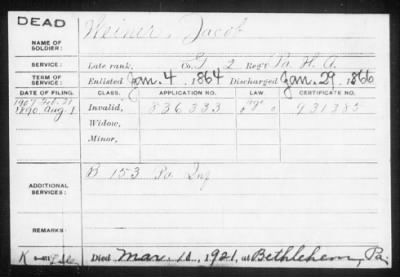 DEAD
Weiner, Jacob
NAME OF SOLDIER:
SERVICE: Late rank, Co. G 2 Reg't Pa. H. A.
TERM OF SERVICE: Enlisted Jan. 4, 1864 Discharged Jan. 29, 1866
DATE OF FILING. CLASS. APPLICATION NO. LAW CERTIFICATE NO.
1907 Feb. 21
1890 Aug. 1 Invalid, 836333 931385
Widow,
Minor,
B 153 Pa Inf
ADDITIONAL SERVICES:
REMARKS:
Died Mar. 10, 1921, at Bethlehem, Pa.